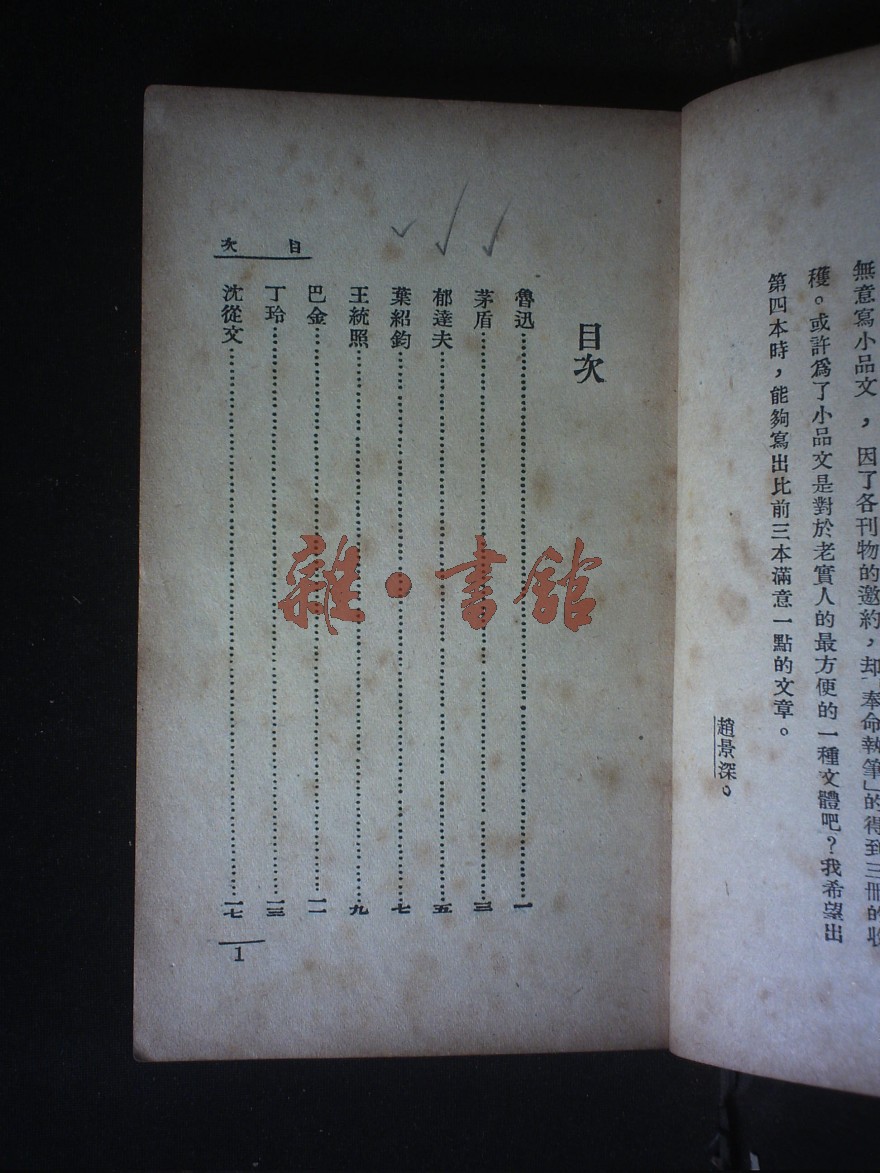 無意寫小品文，因了各刊物的邀約，却「奉命執筆」的得到三冊的收
穫。或許爲了小品文是對於老實人的最方便的一種文體吧？我希望出
第四本時，能夠寫出比前三本滿意一點的文章。
趙景深。
目次
魯迅……一
茅盾……三
郁達夫……五
葉紹鈞……七
王統照……九
巴金……一一
丁玲……一三
沈從文……一七
目次
1
雜·書館